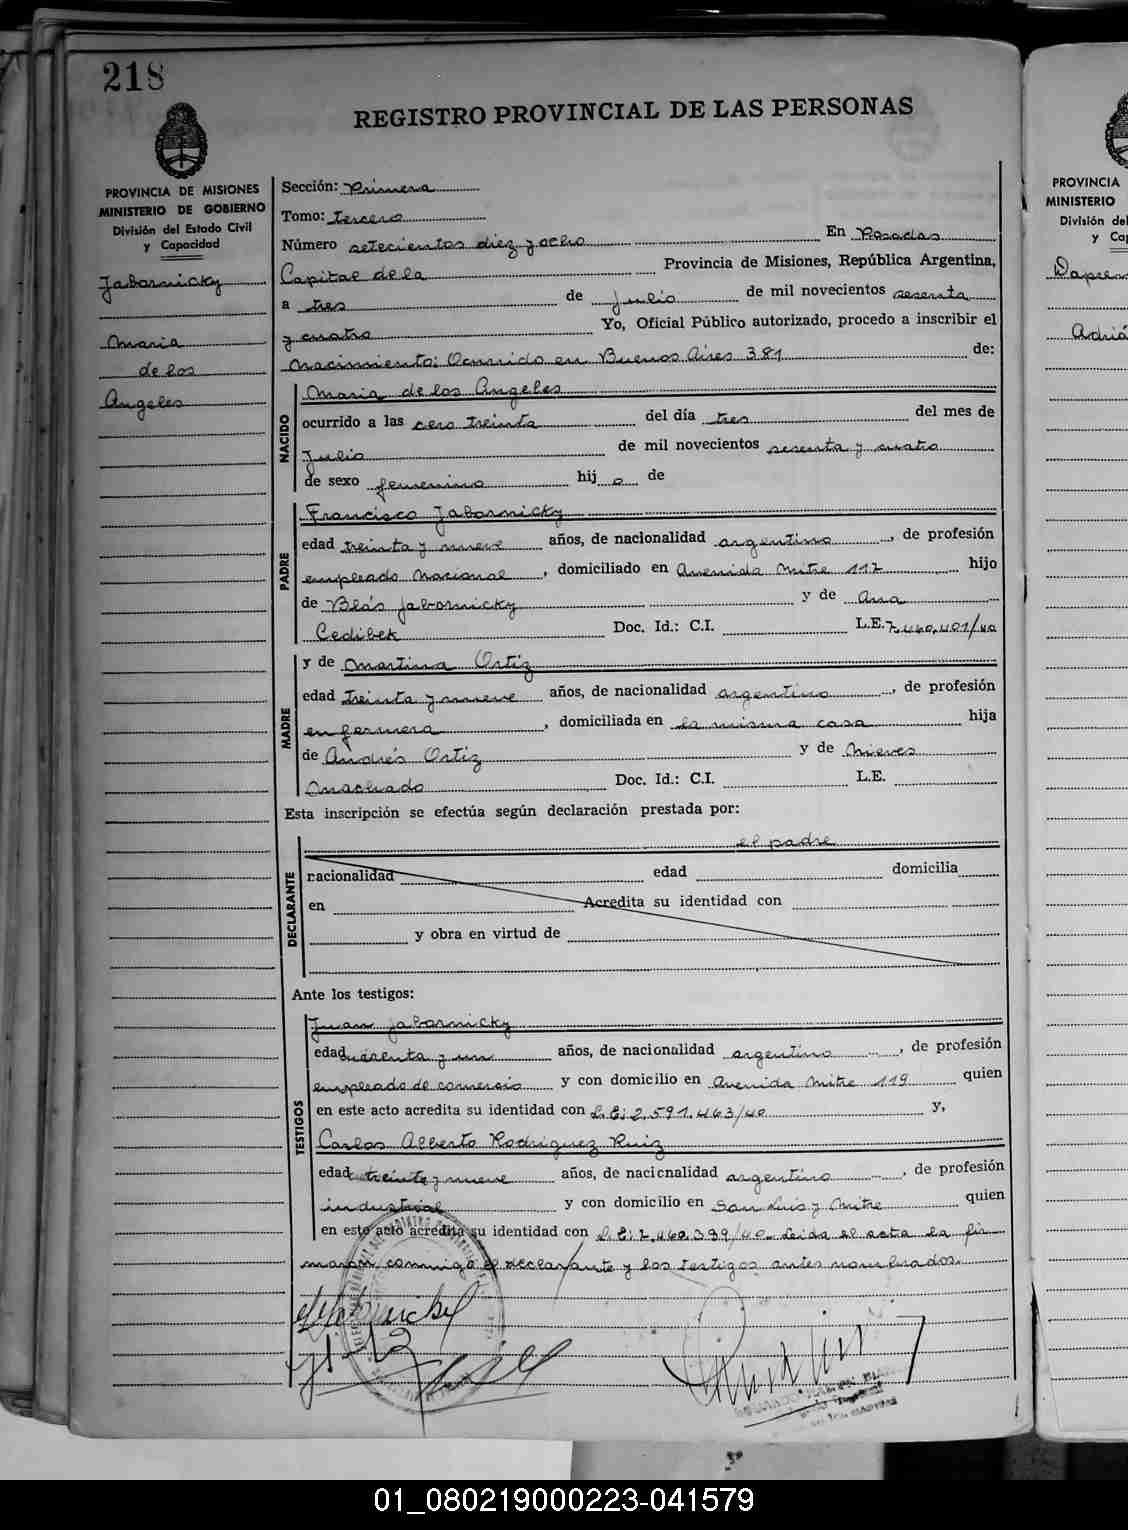 218
REGISTRO PROVINCIAL DE LAS PERSONAS
PROVINCIA DE MISIONES
MINISTERIO DE GOBIERNO
División del Estado Civil
y Capacidad
Jabornicky
Maria
de los
Angeles
Sección: Primera
Tomo: tercero
Número setecientos diez y ocho En Posadas
Capital de la Provincia de Misiones, República Argentina,
a tres de Julio de mil novecientos sesenta
y cuatro Yo, Oficial Público autorizado, procedo a inscribir el
nacimiento: Ocurrido en Buenos Aires 381 de:
NACIDO
Maria de los Angeles
ocurrido a las cero treinta del día tres del mes de
Julio de mil novecientos sesenta y cuatro
de sexo femenino hij a de
PADRE
Francisco Jabornicky
edad treinta y nueve años, de nacionalidad argentino, de profesión
empleado nacional, domiciliado en Avenida Mitre 117 hijo
de Blás Jabornicky y de Ana
Cedibek Doc. Id.: C.I. L.E. 7.460.401/40
MADRE
y de Martina Ortiz
edad treinta y nueve años, de nacionalidad argentino, de profesión
enfermera, domiciliada en la misma casa hija
de Andrés Ortiz y de Nieves
Machado Doc. Id.: C.I. L.E.
Esta inscripción se efectúa según declaración prestada por:
DECLARANTE
el padre
nacionalidad edad domicilia
en Acredita su identidad con
y obra en virtud de
Ante los testigos:
TESTIGOS
Juan Jabornicky
edad cuarenta y un años, de nacionalidad argentino, de profesión
empleado de comercio y con domicilio en Avenida Mitre 119 quien
en este acto acredita su identidad con L.E: 2.591.463/40 y,
Carlos Alberto Rodriguez Ruiz
edad treinta y nueve años, de nacionalidad argentino, de profesión
industrial y con domicilio en San Luis y Mitre quien
en este acto acredita su identidad con L.E: 7.460.399/40. Leida el acta la fir
maron conmigo el declarante y los testigos antes nombrados.
PROVINCIA
MINISTERIO
División del
y Cap
Adriá
01_080219000223-041579